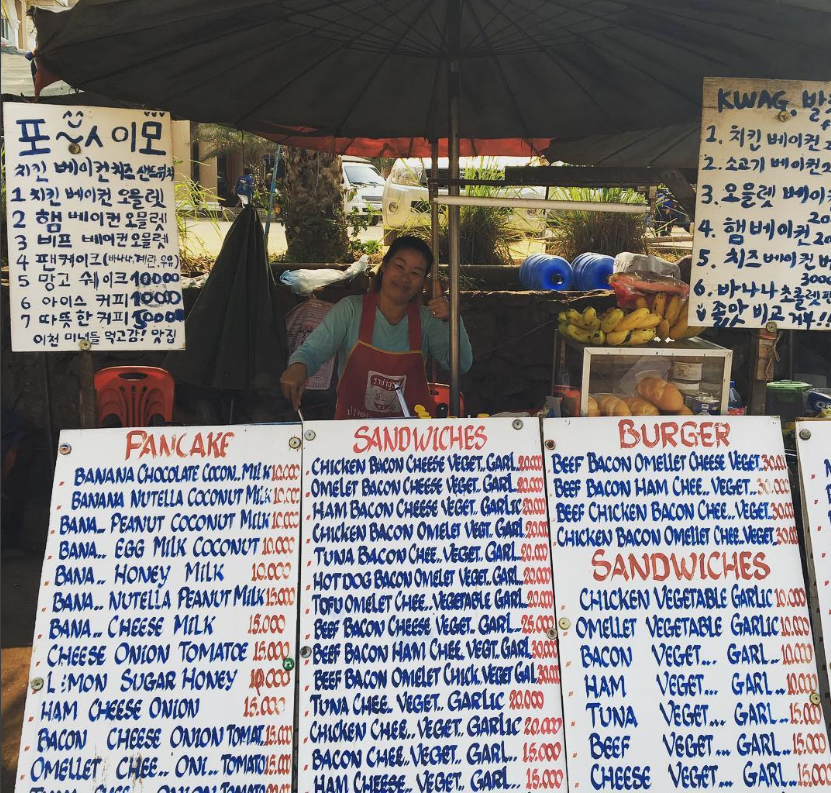 포 ㅅ 이모
치킨 베이컨 치즈 샌드위치
1 치킨 베이컨 오믈렛
2 햄 베이컨 오믈렛
3 비프 베이컨 오믈렛
4 팬케이크 (바나나, 계란, 우유)
5 망고 쉐이크 10000
6 아이스 커피 10000
7 따뜻한 커피
이천 미녀들 먹고감! 맛집
KWAG.
1. 치킨 베이컨
2. 소고기 베이컨
3. 오믈렛 베이
4. 햄 베이컨
5. 치즈베이컨
6. 바나나 초콜릿
좋맛 비교 거부!!
PANCAKE
BANANA CHOCOLATE COCON.. MILK 10.000
BANANA NUTELLA COCONUT MILK 10.000
BANA.. PEANUT COCONUT MILK 10.000
BANA.. EGG MILK COCONUT 10.000
BANA.. HONEY MILK 10.000
BANA.. NUTELLA PEANUT MILK 15.000
BANA.. CHEESE MILK 15.000
CHEESE ONION TOMATOE 15.000
LEMON SUGAR HONEY 10.000
HAM CHEESE ONION 15.000
BACON CHEESE ONION TOMAT. 15.000
OMELLET CHEE.. ONI.. TOMATO 15.000
SANDWICHES
CHICKEN BACON CHEESE VEGET.. GARL.. 20.000
OMELET BACON CHEESE VEGET.. GARL. 20.000
HAM BACON CHEESE VEGET.. GARLIC 20.000
CHICKEN BACON OMELET VEGT. GARL. 20.000
TUNA BACON CHEE.. VEGET. GARL. 20.000
HOT DOG BACON OMELET VEGET. GARL.. 20.000
TOFU OMELET CHEE.. VEGETABLE GARL. 20.000
BEEF BACON CHEESE VEGET.. GARL. 25.000
BEEF BACON HAM CHEE. VEGET. GARL. 30.000
BEEF BACON OMELET CHICK. VEGET GAL. 30.000
TUNA CHEE.. VEGET. GARLIC 20.000
CHICKEN CHEE.. VEGET. GARLIC 20.000
BACON CHEE.. VEGET.. GARL.. 15.000
HAM CHEESE.. VEGET.. GARL.. 15.000
BURGER
BEEF BACON OMELLET CHEESE VEGET. 30.000
BEEF BACON HAM CHEE.. VEGET.. 30.000
BEEF CHICKEN BACON CHEE.. VEGET. 30.000
CHICKEN BACON OMELLET CHEE.. VEGET. 30.000
SANDWICHES
CHICKEN VEGETABLE GARLIC 10.000
OMELLET VEGETABLE GARLIC 10.000
BACON VEGET... GARL... 10.000
HAM VEGET... GARL.. 10.000
TUNA VEGET... GARL.. 15.000
BEEF VEGET... GARL.. 15.000
CHEESE VEGET... GARL.. 15.000